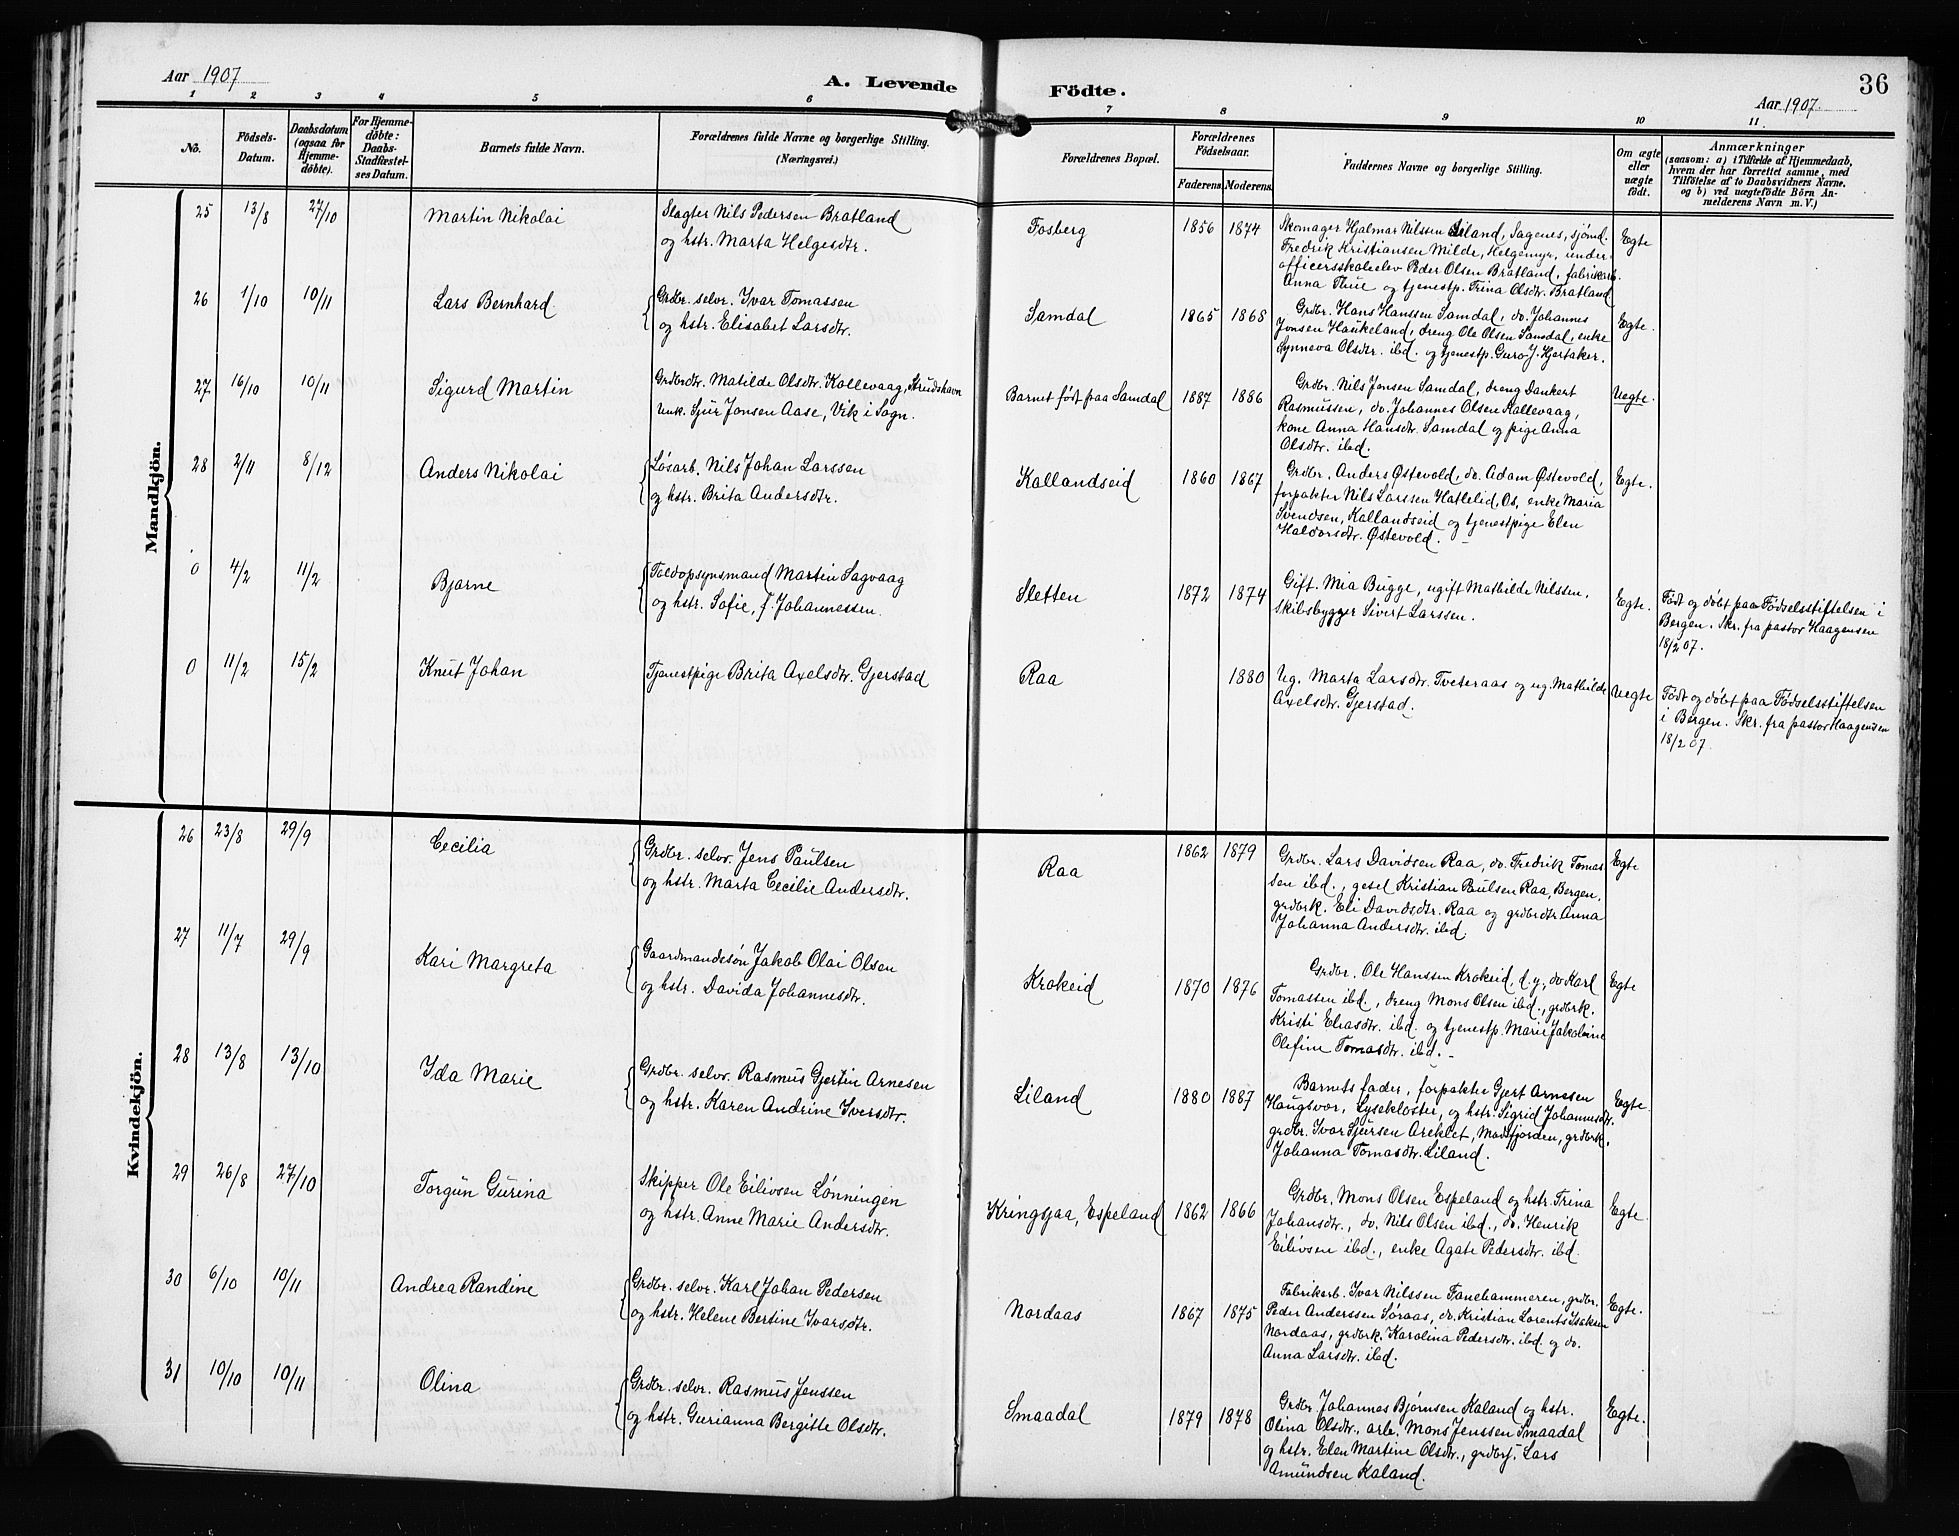 Aar 1907
A. Levende Födte.
36
Aar 1907.
1 2 3 4 5 6 7 8 9 10 11.
No.
Födsels-
Datum.
Daabsdatum
(ogsaa for
Hjemme-
döbte).
For Hjemme-
döbte:
Daabs-
Stadfæstel-
ses Datum.
Barnets fulde Navn.
Forældrenes fulde Navne og borgerlige Stilling.
(Næringsvei.)
Forældrenes Bopæl.
Forældrenes
Födselsaar.
Faderens. Moderens.
Faddernes Navne og borgerlige Stilling.
Om ægte
eller
uægte
födt.
Anmærkninger
(saasom: a) i Tilfælde af Hjemmedaab,
hvem der har forrettet samme, med
Tilföielse af to Daabsvidners Navne,
og b) ved uægtefödte Börn An-
melderens Navn m. V.)
Mandkjön.
25 13/8 27/10 Martin Nikolai
Slagter Nils Pedersen Bratland
og hstr. Marta Helgesdtr.
Fosberg 1856 1874
Skomager Hjalmar Nilssen Liland, Sagenes, sjømd.
Fredrik Kristiansen Milde, Helgemyr, under-
officersskoleelev Peder Olsen Bratland, fabrikarb.
Anna Thue og tjenestp. Trina Olsdtr. Bratland
Egte
26 1/10 10/11 Lars Bernhard
Grdbr. selv. Ivar Tomassen
og hstr. Elisabet Larsdtr.
Samdal 1865 1868
Grdbr. Hans Hanssen Samdal, do. Johannes
Jonsen Haukeland, dreng Ole Olsen Samdal, enke
Synneva Olsdtr. ibd. og tjenestp. Guro J. Hjertaker.
Egte.
27. 16/10 10/11 Sigurd Martin
Grdbrdtr. Matilde Olsdtr. Kallevaag, Strudshavn
Unk. Sjur Jonsen Aase, Vik i Sogn.
Barnet født paa Samdal 1887 1886
Grdbr. Nils Jonsen Samdal, dreng Dankert
Rasmussen, do. Johannes Olsen Kallevaag,
kone Anna Hansdtr. Samdal og pige Anna
Olsdtr. ibd.
Uegte.
28 2/11 8/12 Anders Nikolai
Løsarb. Nils Johan Larssen
og hstr. Brita Andersdtr.
Kallandseid 1860 1867
Grdbr. Anders Østevold, do. Adam Østevold,
forpakter Nils Larssen Hatlelid, Os, enke Maria
Svendsen, Kallandseid og tjenestpige Elen
Haldorsdtr. Østevold.
Egte.
0 4/2 11/2 Bjarne
Toldopsynsmand Martin Sagvaag
og hstr. Sofie, f. Johannessen.
Sletten 1872 1874
Gift. Mia Bugge, ugift Mathilde Nilssen.
Skibsbygger Sivert Larssen.
Egte.
Født og døbt paa Fødselsstiftelsen i
Bergen. Skr. fra pastor Haagensen
18/2 07.
0 11/2 15/2 Knut Johan
Tjenestpige Brita Axelsdtr. Gjerstad
Raa 1880
Ug. Marta Larsdtr. Tveteraas og ug. Mathilde
Axelsdtr. Gjerstad.
Uegte
Født og døbt paa Fødselsstiftelsen
i Bergen. Skr. fra pastor Haagensen
18/2 07.
Kvindekjön.
26 23/8 29/9 Cecilia
Grdbr. selv. Jens Paulsen
og hstr. Marta Cecilie Andersdtr.
Raa 1862 1879
Grdbr. Lars Davidsen Raa, do. Fredrik Tomas-
sen ibd., gesel Kristian Paulsen Raa, Bergen,
grdbrk. Eli Davidsdtr. Raa og grdbrdtr Anna
Johanna Andersdtr. ibd.
Egte
27 11/7 29/9 Kari Margreta
Gaardmandssøn Jakob Olai Olsen
og hstr. Davida Johannesdtr.
Krokeid 1870 1876
Grdbr. Ole Hanssen Krokeid, d.y., do Karl
Tomassen ibd., dreng Mons Olsen ibd., grdbrk.
Kristi Eliasdtr. ibd. og tjenestp. Marie Jakobine
Olefine Tomasdtr. ibd.
Egte
28 13/8 13/10 Ida Marie
Grdbr. selv. Rasmus Gjertin Arnesen
og hstr. Karen Andrine Iversdtr.
Liland 1880 1887
Barnets fader, forpakter Gjert Arnesen
Haugsvær, Lysekloster, og hstr. Sigrid Johannesdtr.
grdbr. Ivar Sjursen Areklet, Masfjorden, grdbrk.
Johanna Tomasdtr. Liland.
Egte.
29 26/8 27/10 Torgun Gurina
Skipper Ole Eilivsen Lønningen
og hstr. Anne Marie Andersdtr.
Kringsjaa, Espeland 1862 1866
Grdbr. Mons Olsen Espeland og hstr. Trina
Johansdtr., do. Nils Olsen ibd., do. Henrik
Eilivsen ibd., enke Agate Pedersdtr. ibd.
Egte.
30 6/10 10/11 Andrea Randine
Grdbr. selv. Karl Johan Pedersen
og hstr. Helene Bertine Ivarsdtr.
Nordaas 1867 1875
Fabrikarb. Ivar Nilssen Fanehammeren, grdbr.
Peder Anderssen Søraas, do. Kristian Lorents Isaksen
Nordaas, grdbrk. Karolina Pedersdtr. ibd. og do.
Anna Larsdtr. ibd.
Egte.
31 10/10 10/11 Olina
Grdbr. selv. Rasmus Jenssen
og hstr. Gurianna Bergitte Olsdtr.
Smaadal 1879 1878
Grdbr. Johannes Bjørnsen Kaland og hstr.
Olina Olsdtr., arb. Mons Jenssen Smaadal
og hstr. Elen Martine Olsdtr., grdbrs. Lars
Amundsen Kaland.
Egte.